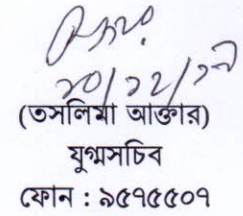 ২০/১২/১৭
(তসলিমা আক্তার)
যুগ্মসচিব
ফোন : ৯৫৭৫৫০৭